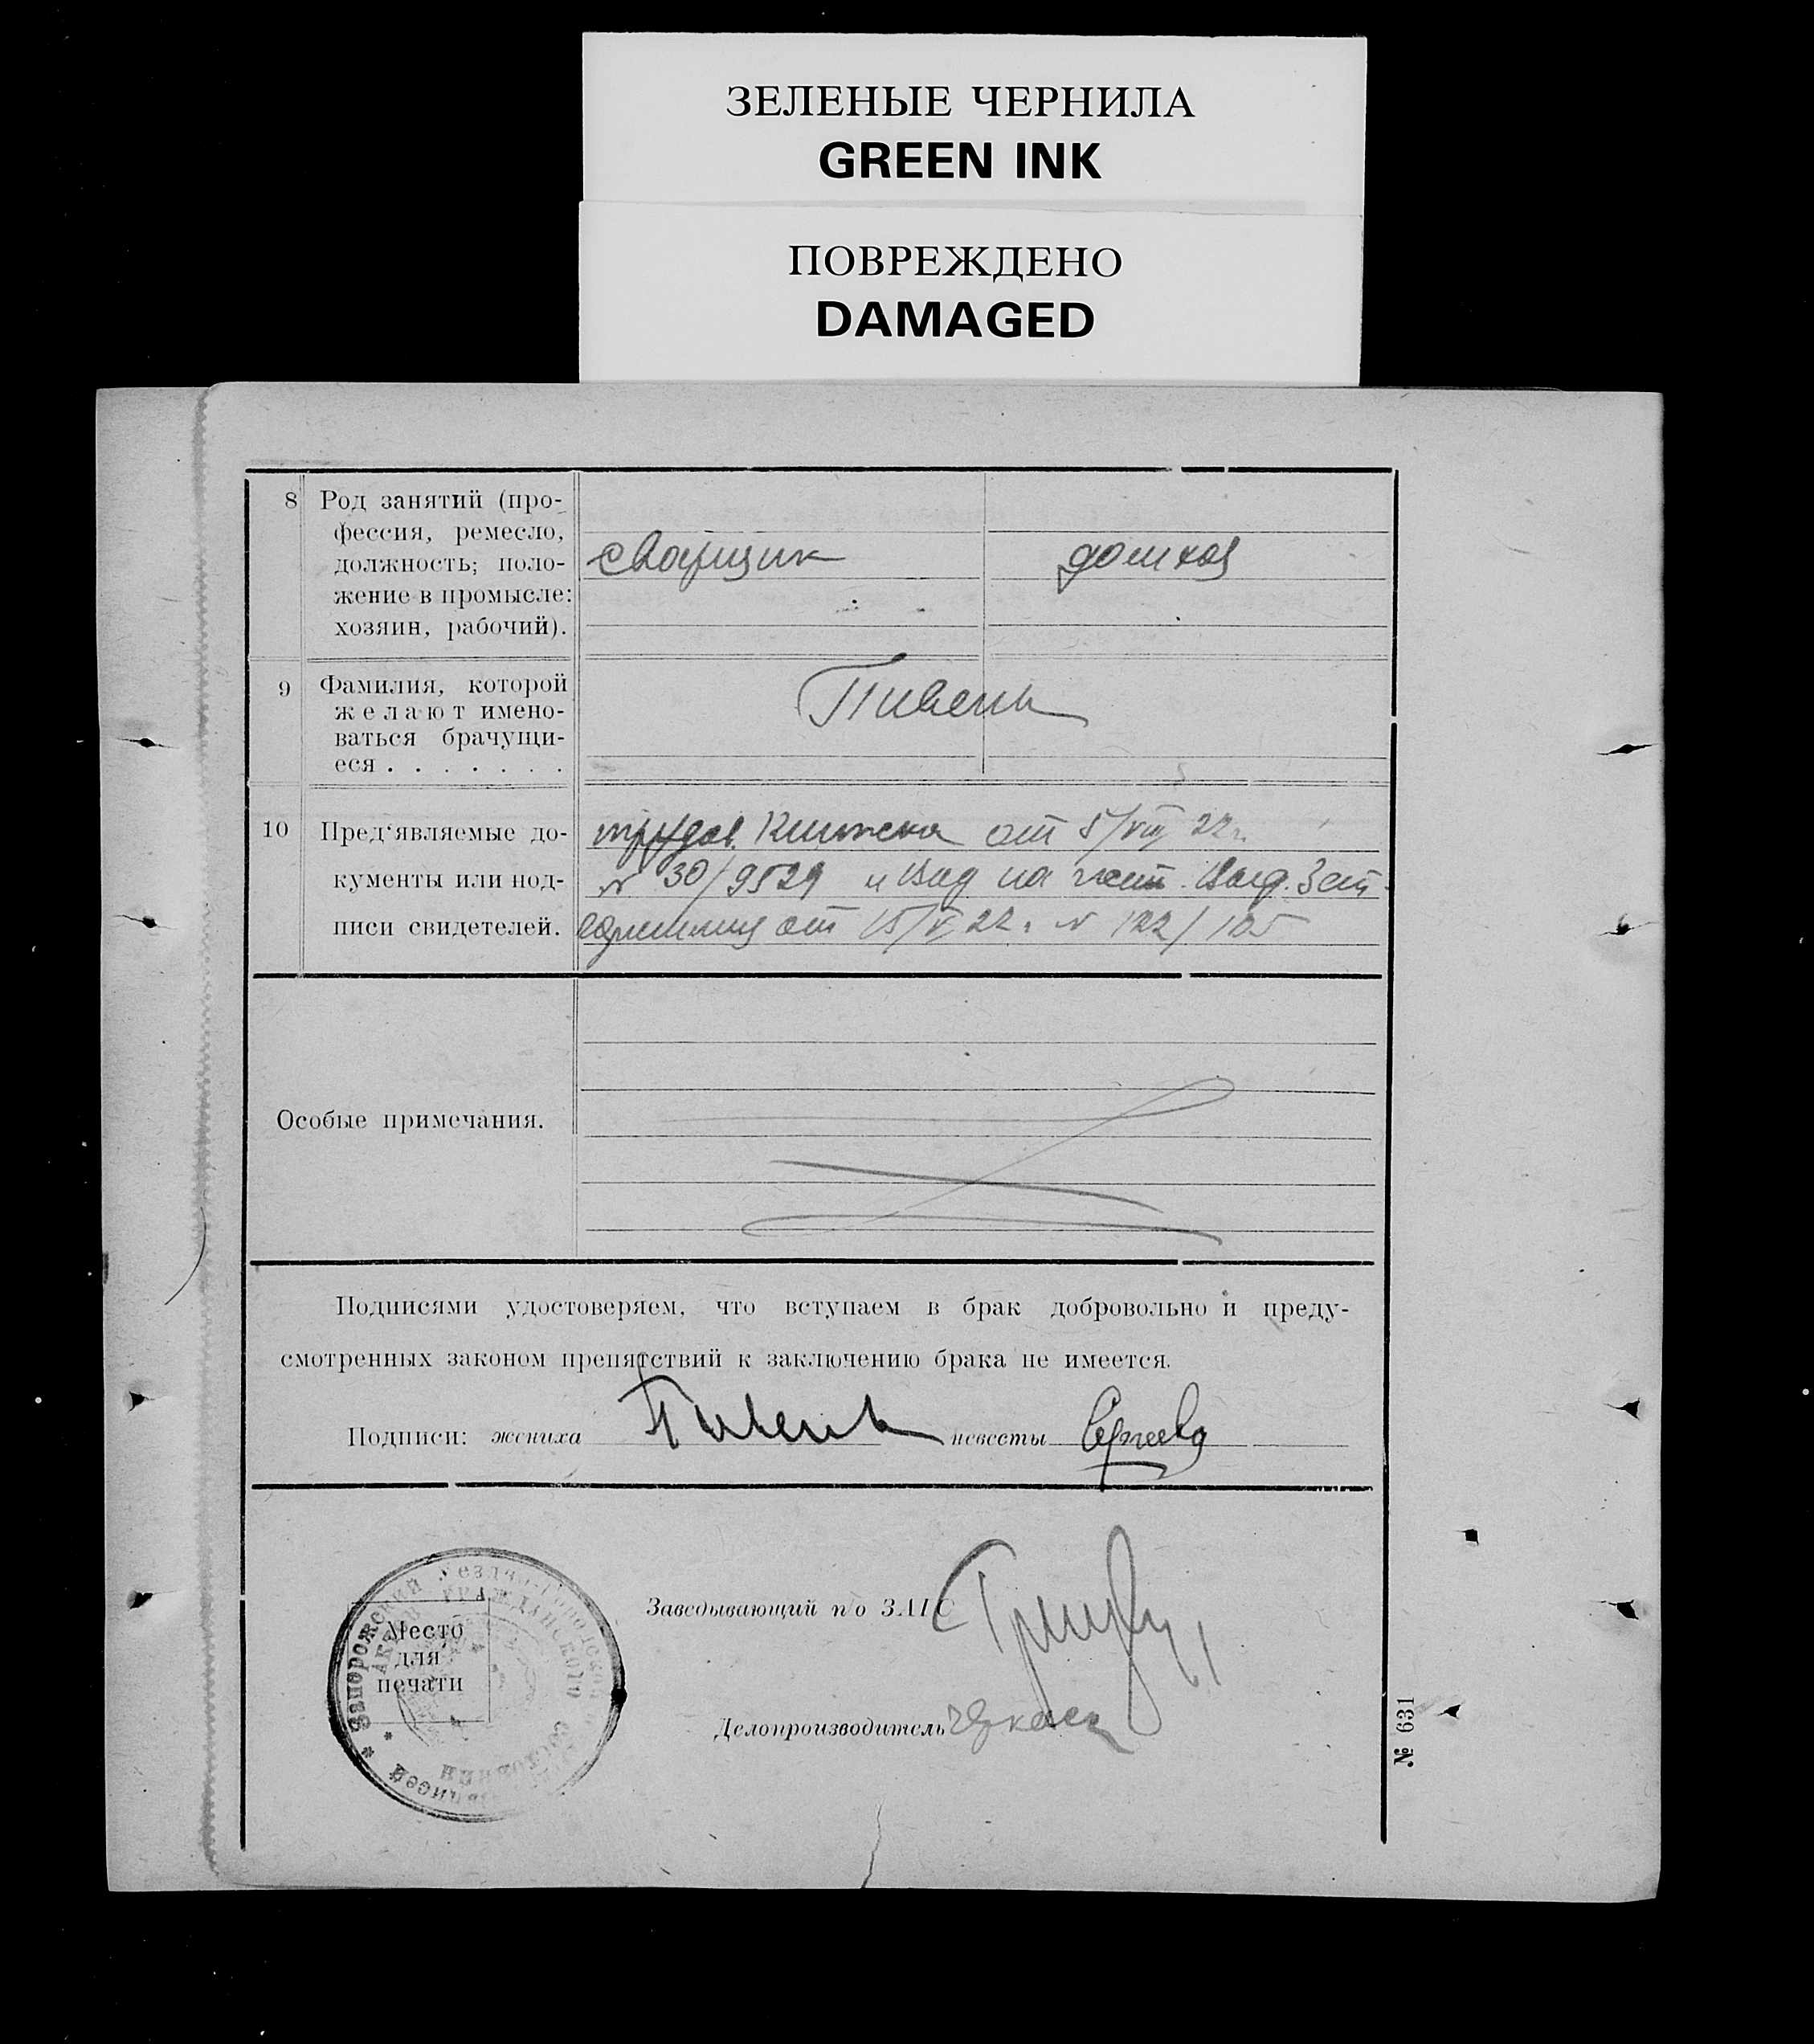 ЗЕЛЕНЫЕ ЧЕРНИЛА
GREEN INK
ПОВРЕЖДЕНО
DAMAGED
8 Род занятий (про-
фессия, ремесло,
должность; поло-
жение в промысле:
хозяин, рабочий).
сварщик
9 Фамилия, которой
желают имено-
ваться брачущи-
еся . . . . . . .
Пивень
10 Пред'являемые до-
кументы или под-
писи свидетелей.
трудов. Книжка от 5/VIII 22 г.
№ 30/9529 и вид на
от 15/V 22 г. № 122/105
Особые примечания.
Подписями удостоверяем, что вступаем в брак добровольно и преду-
смотренных законом препятствий к заключению брака не имеется.
Подписи: жениха Пивень невесты
Заведывающий п/о ЗАГС
Делопроизводитель
Место
для
печати
Запорожский
записей
№ 631